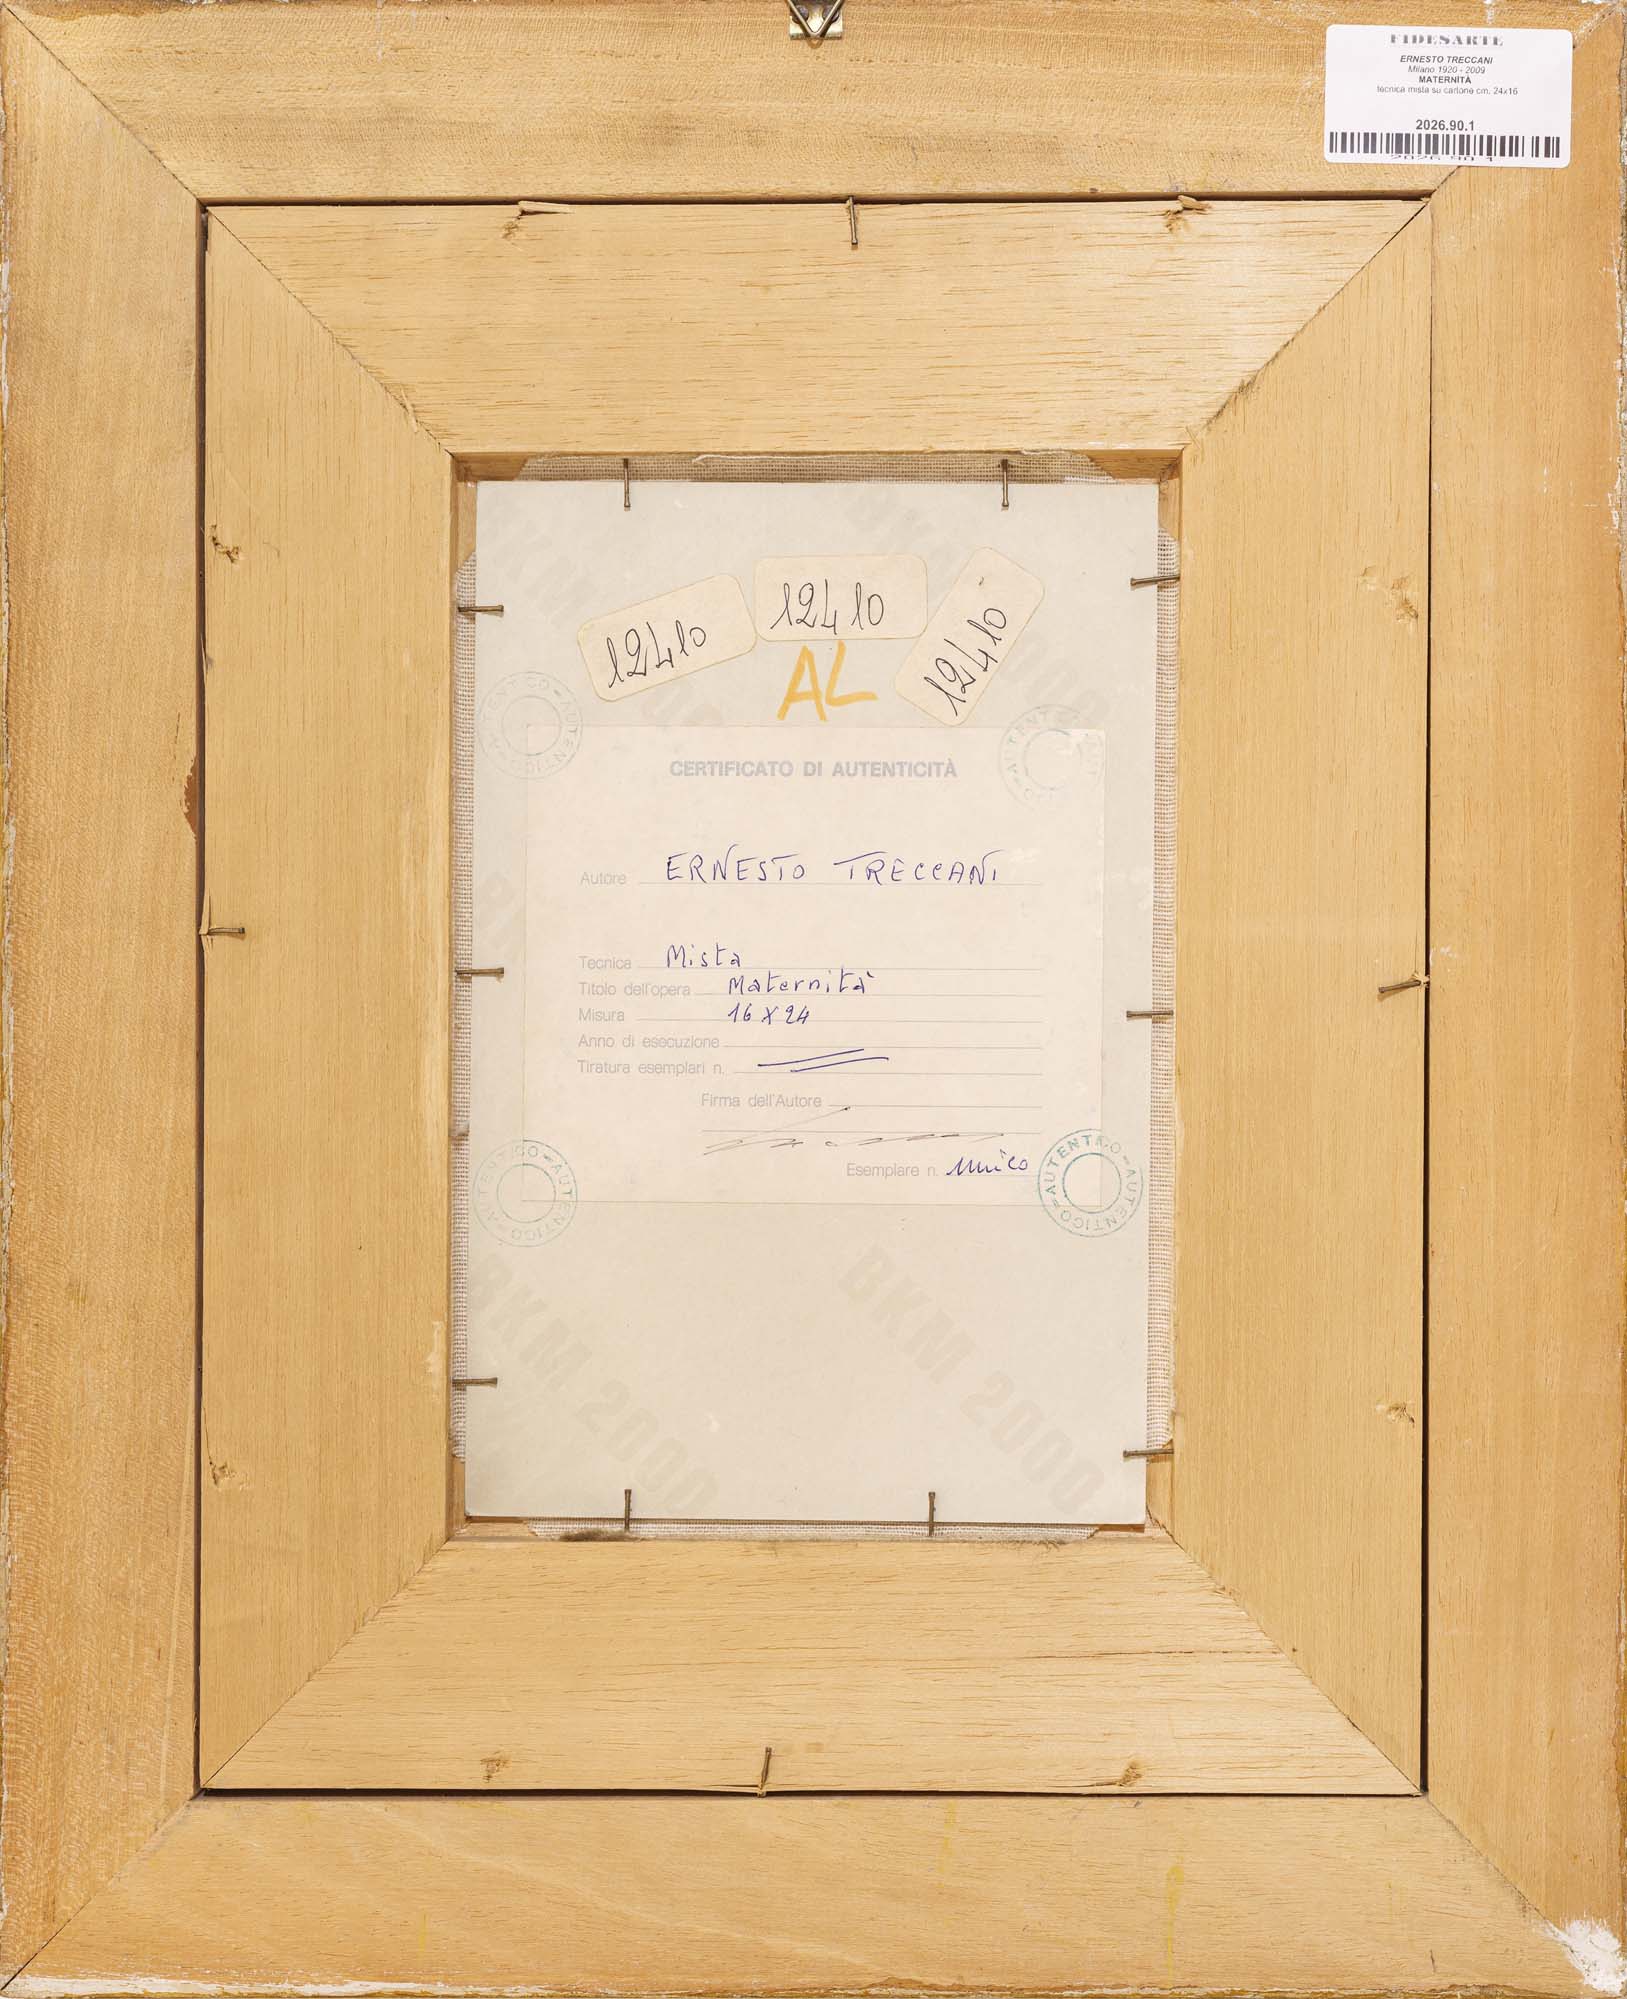 FIDESARTE
ERNESTO TRECCANI
Milano 1920 - 2009
MATERNITÀ
tecnica mista su cartone cm. 24x16
2026.90.1
2026 90 1
12410
12410
12410
AL
AUTENTICO - AUTENTICO
AUTENTICO
CERTIFICATO DI AUTENTICITÀ
Autore ERNESTO TRECCANI
Tecnica Mista
Titolo dell'opera Maternità
Misura 16 x 24
Anno di esecuzione
Tiratura esemplari n.
Firma dell'Autore
Esemplare n. unico
AUTENTICO - AUTENTICO
AUTENTICO - AUTENTICO
BKM 2000
BKM 2000